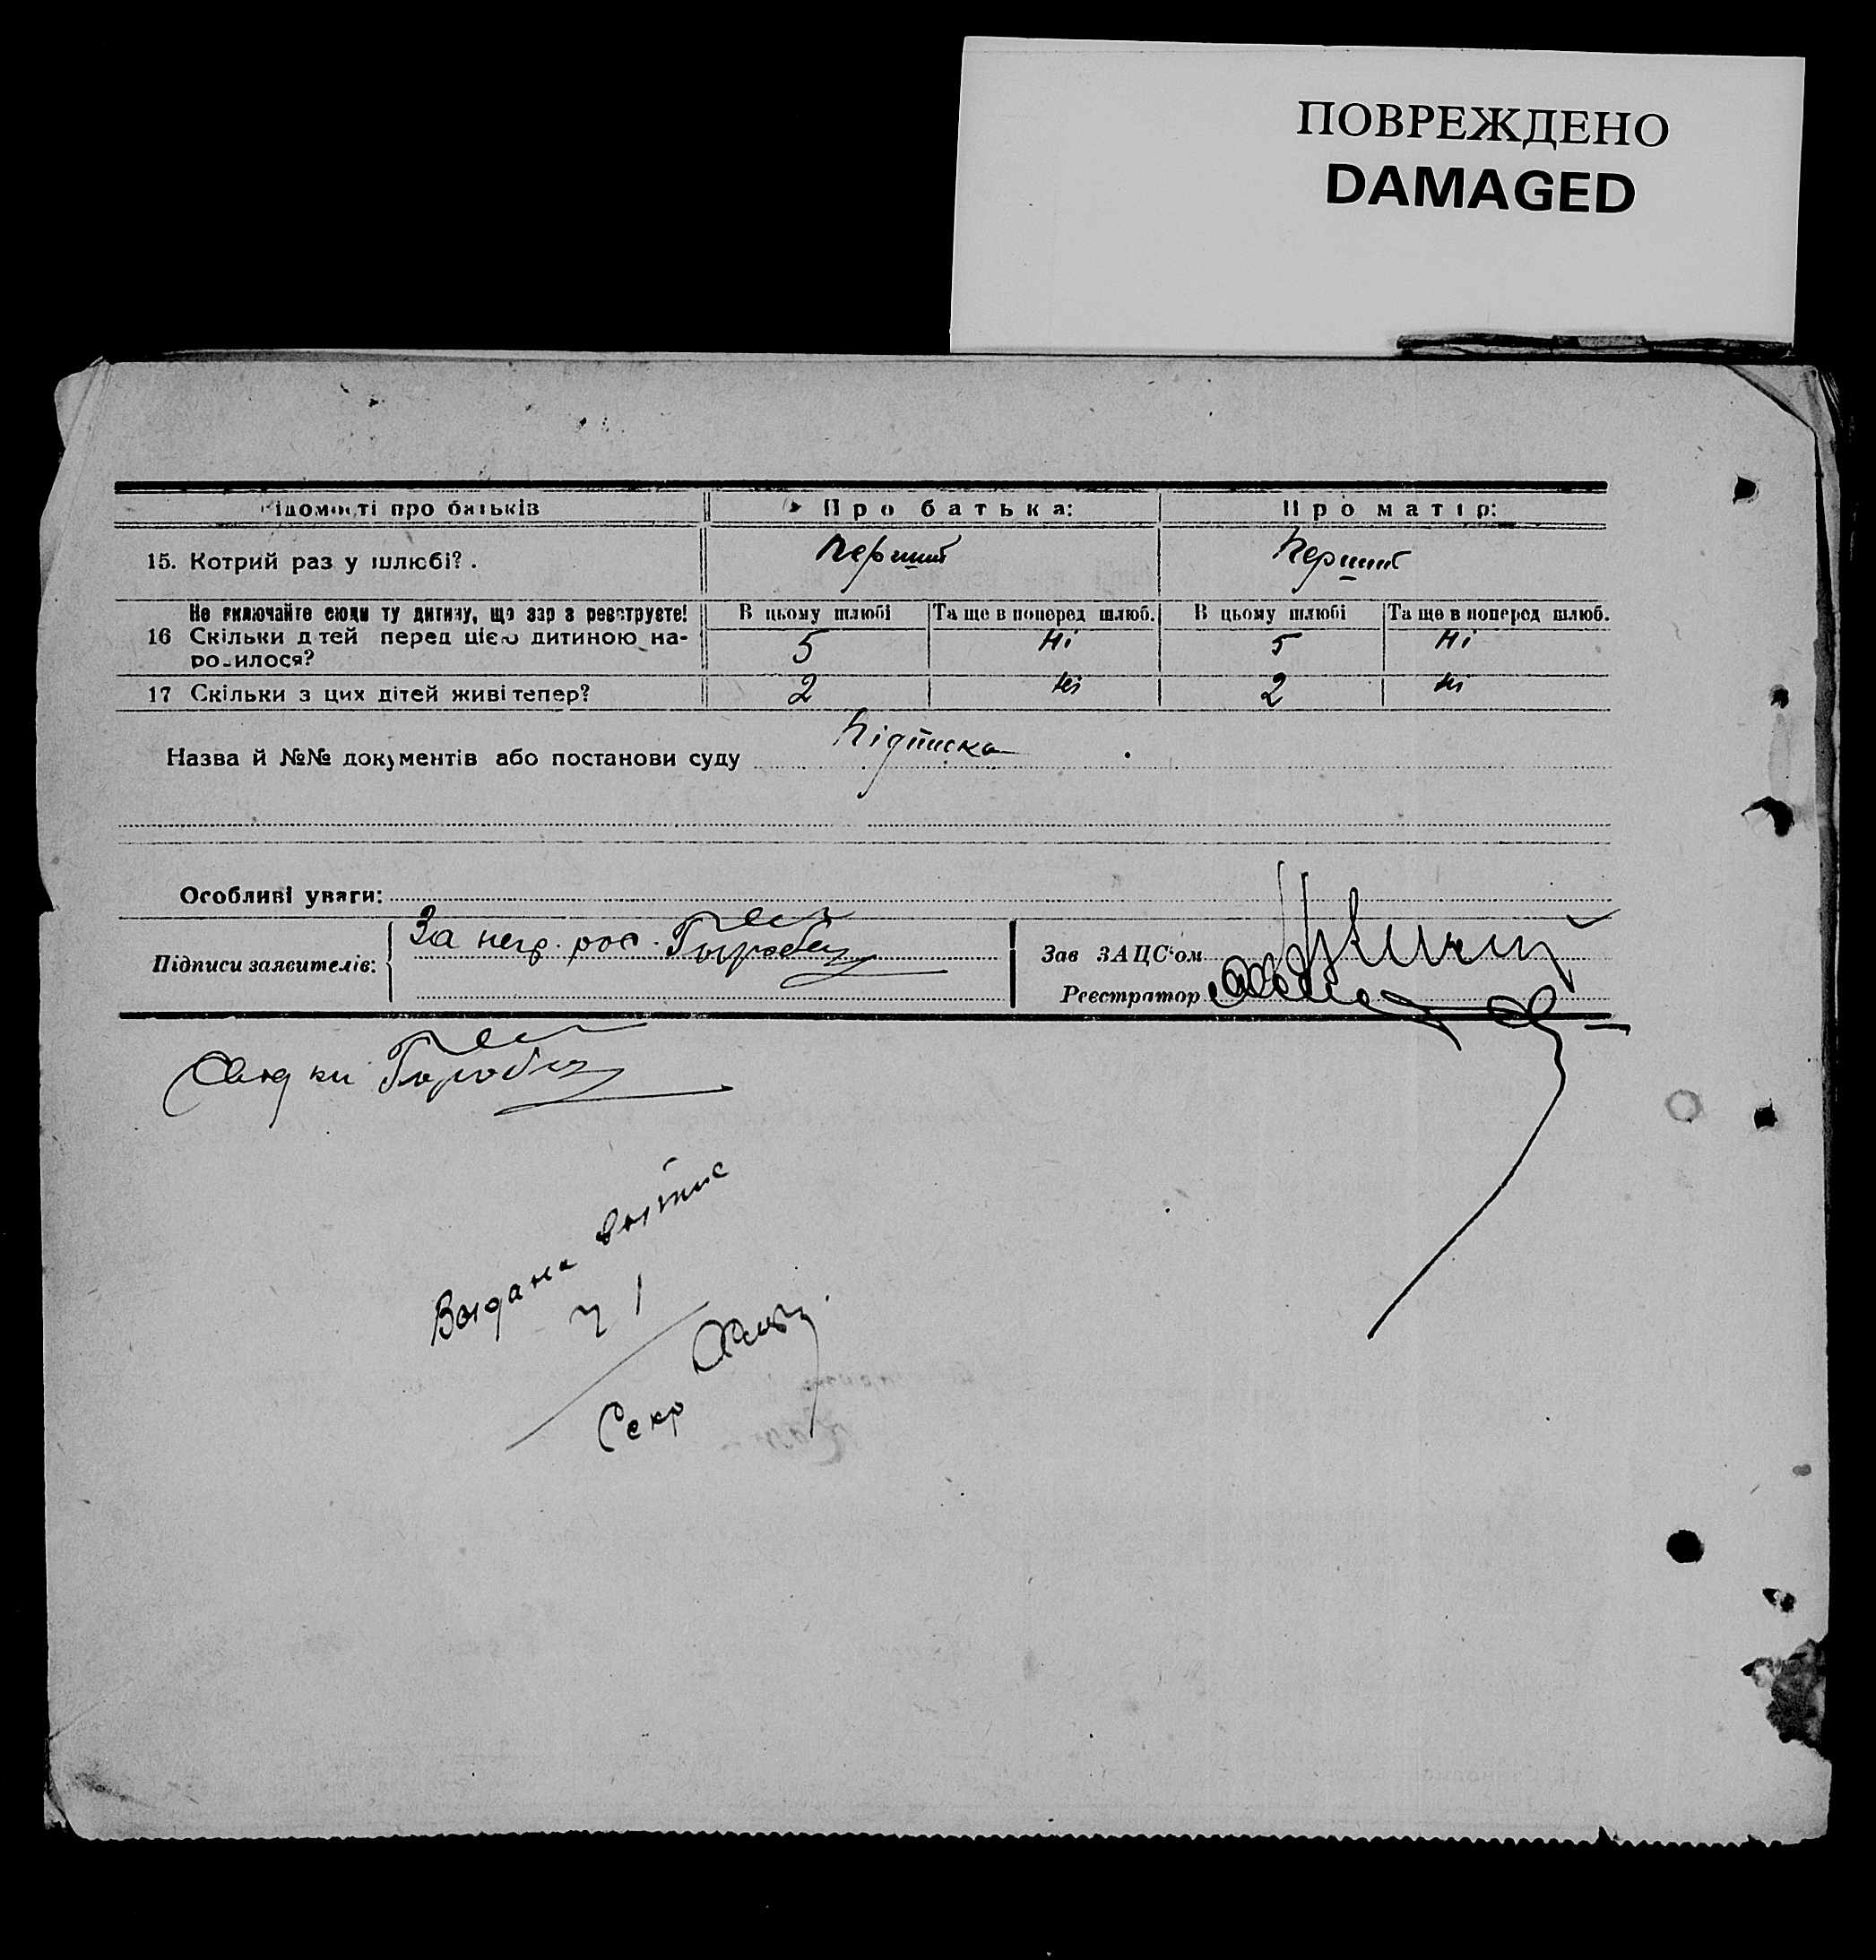 ПОВРЕЖДЕНО
DAMAGED
Відомості про батьків Про батька: Про матір:
15. Котрий раз у шлюбі? . перший перший
Не включайте сюди ту дитину, що зараз реєструєте! В цьому шлюбі Та ще в поперед шлюб. В цьому шлюбі Та ще в поперед шлюб.
16 Скільки дітей перед цією дитиною на- 5 ні 5 ні
родилося?
17 Скільки з цих дітей живі тепер? 2 ні 2 ні
Назва й №№ документів або постанови суду підписка
Особливі уваги:
Підписи заявителів: За негр. рос.
Зав ЗАЦС'ом
Реєстратор
Свідки
Выдана выпис
Секр